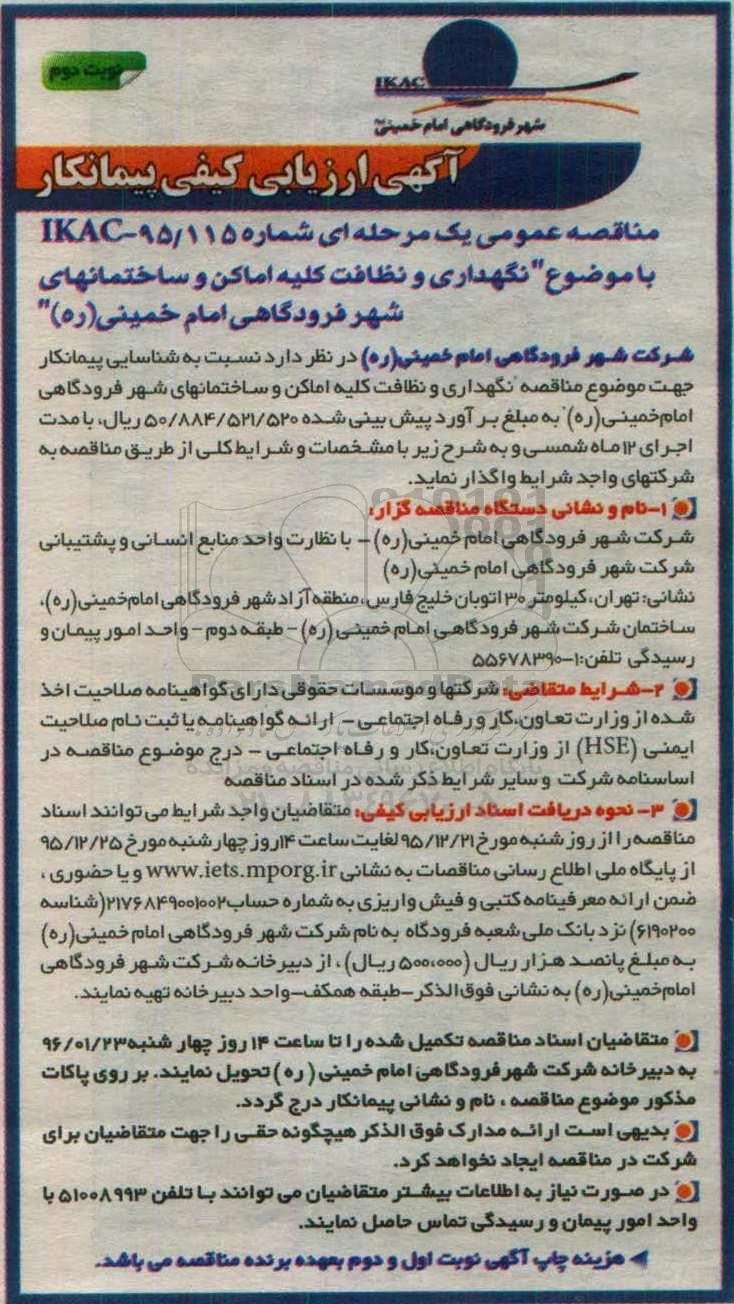 نوبت دوم
IKAC
شهر فرودگاهی امام خمینی(ره)
آگهی ارزیابی کیفی پیمانکار
مناقصه عمومی یک مرحله ای شماره IKAC-۹۵/۱۱۵
با موضوع "نگهداری و نظافت کلیه اماکن و ساختمانهای
شهر فرودگاهی امام خمینی(ره)"
شرکت شهر فرودگاهی امام خمینی(ره) در نظر دارد نسبت به شناسایی پیمانکار
جهت موضوع مناقصه "نگهداری و نظافت کلیه اماکن و ساختمانهای شهر فرودگاهی
امام‌خمینی(ره)" به مبلغ بر آورد پیش بینی شده ۵۰/۸۸۴/۵۲۱/۵۲۰ ریال، با مدت
اجرای ۱۲ ماه شمسی و به شرح زیر با مشخصات و شرایط کلی از طریق مناقصه به
شرکتهای واجد شرایط واگذار نماید.
۱-نام و نشانی دستگاه مناقصه گزار:
شرکت شهر فرودگاهی امام خمینی(ره) - با نظارت واحد منابع انسانی و پشتیبانی
شرکت شهر فرودگاهی امام خمینی(ره)
نشانی: تهران، کیلومتر ۳۰ اتوبان خلیج فارس، منطقه آزاد شهر فرودگاهی امام‌خمینی(ره)،
ساختمان شرکت شهر فرودگاهی امام خمینی (ره) - طبقه دوم - واحد امور پیمان و
رسیدگی تلفن: ۱-۵۵۶۷۸۳۹۰
۲-شرایط متقاضی: شرکتها و موسسات حقوقی دارای گواهینامه صلاحیت اخذ
شده از وزارت تعاون،کار و رفاه اجتماعی - ارائه گواهینامه یا ثبت نام صلاحیت
ایمنی (HSE) از وزارت تعاون،کار و رفاه اجتماعی - درج موضوع مناقصه در
اساسنامه شرکت و سایر شرایط ذکر شده در اسناد مناقصه
۳- نحوه دریافت اسناد ارزیابی کیفی: متقاضیان واجد شرایط می توانند اسناد
مناقصه را از روز شنبه مورخ ۹۵/۱۲/۲۱ لغایت ساعت ۱۴ روز چهارشنبه مورخ ۹۵/۱۲/۲۵
از پایگاه ملی اطلاع رسانی مناقصات به نشانی www.iets.mporg.ir و یا حضوری ،
ضمن ارائه معرفینامه کتبی و فیش واریزی به شماره حساب ۲۱۷۶۸۴۹۰۰۱۰۰۲(شناسه
۶۱۹۰۲۰۰) نزد بانک ملی شعبه فرودگاه به نام شرکت شهر فرودگاهی امام خمینی(ره)
به مبلغ پانصد هزار ریال (۵۰۰،۰۰۰ ریال) ، از دبیرخانه شرکت شهر فرودگاهی
امام‌خمینی(ره) به نشانی فوق الذکر-طبقه همکف-واحد دبیرخانه تهیه نمایند.
متقاضیان اسناد مناقصه تکمیل شده را تا ساعت ۱۴ روز چهار شنبه ۹۶/۰۱/۲۳
به دبیرخانه شرکت شهر فرودگاهی امام خمینی ( ره ) تحویل نمایند. بر روی پاکات
مذکور موضوع مناقصه ، نام و نشانی پیمانکار درج گردد.
بدیهی است ارائه مدارک فوق الذکر هیچگونه حقی را جهت متقاضیان برای
شرکت در مناقصه ایجاد نخواهد کرد.
در صورت نیاز به اطلاعات بیشتر متقاضیان می توانند با تلفن ۵۱۰۰۸۹۹۳ با
واحد امور پیمان و رسیدگی تماس حاصل نمایند.
هزینه چاپ آگهی نوبت اول و دوم بعهده برنده مناقصه می باشد.